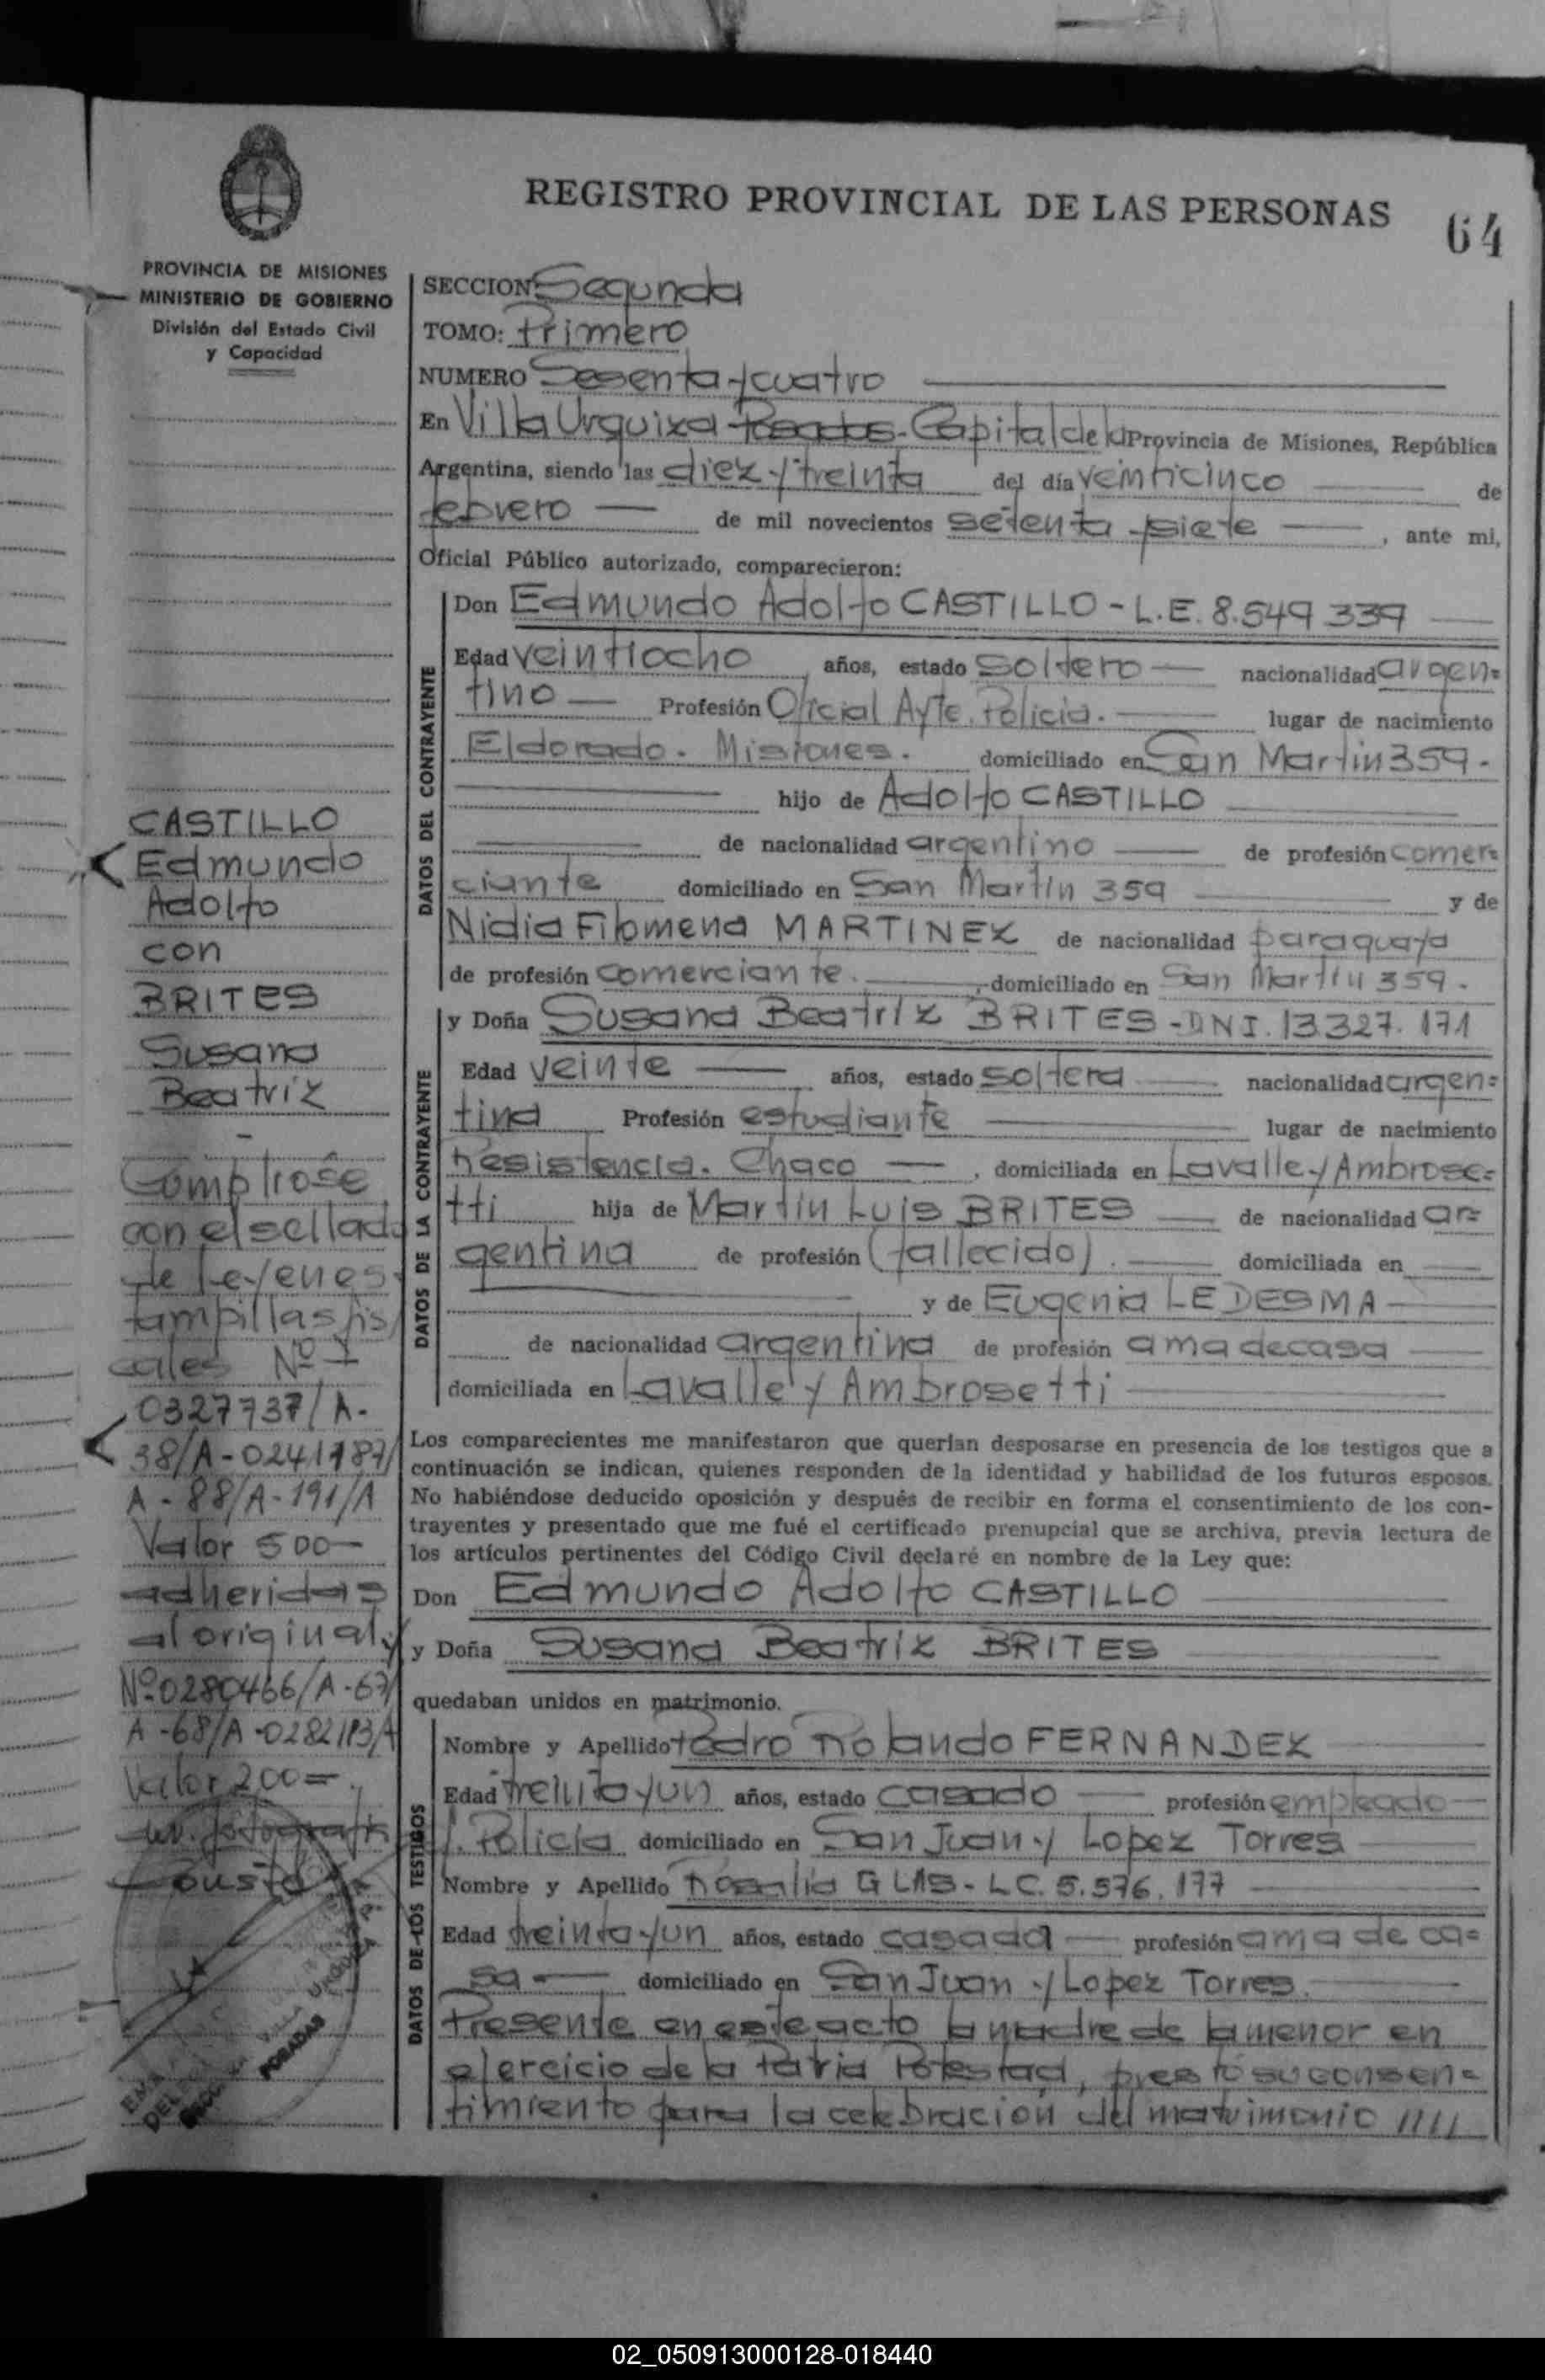 REGISTRO PROVINCIAL DE LAS PERSONAS
64
PROVINCIA DE MISIONES
MINISTERIO DE GOBIERNO
División del Estado Civil
y Capacidad
SECCION Segunda
TOMO: Primero
NUMERO Sesenta y cuatro
En Villa Urquiza - Posadas - Capital de la Provincia de Misiones, República
Argentina, siendo las diez y treinta del día veinticinco de
febrero de mil novecientos setenta y siete, ante mi,
Oficial Público autorizado, comparecieron:
DATOS DEL CONTRAYENTE
Don Edmundo Adolfo CASTILLO - L.E. 8.549 339
Edad veintiocho años, estado soltero nacionalidad argen=
tino Profesión Oficial Ayte. Policia. lugar de nacimiento
Eldorado. Misiones. domiciliado en San Martin 359.
hijo de Adolfo CASTILLO
de nacionalidad argentino de profesión comer=
ciante domiciliado en San Martin 359 y de
Nidia Filomena MARTINEZ de nacionalidad paraguaya
de profesión comerciante. domiciliado en San Martin 359.
DATOS DE LA CONTRAYENTE
y Doña Susana Beatriz BRITES - DNI. 13.327. 171
Edad veinte años, estado soltera nacionalidad argen=
tina Profesión estudiante lugar de nacimiento
Resistencia. Chaco, domiciliada en Lavalle y Ambrose=
tti hija de Martin Luis BRITES de nacionalidad ar=
gentina de profesión (fallecido). domiciliada en
y de Eugenia LEDESMA
de nacionalidad argentina de profesión ama de casa
domiciliada en Lavalle y Ambrosetti
Los comparecientes me manifestaron que querían desposarse en presencia de los testigos que a
continuación se indican, quienes responden de la identidad y habilidad de los futuros esposos.
No habiéndose deducido oposición y después de recibir en forma el consentimiento de los con-
trayentes y presentado que me fué el certificado prenupcial que se archiva, previa lectura de
los artículos pertinentes del Código Civil declaré en nombre de la Ley que:
Don Edmundo Adolfo CASTILLO
y Doña Susana Beatriz BRITES
quedaban unidos en matrimonio.
DATOS DE LOS TESTIGOS
Nombre y Apellido Pedro Rolando FERNANDEZ
Edad treinta y un años, estado casado profesión empleado
Policia domiciliado en San Juan y Lopez Torres
Nombre y Apellido Rosalia GLAS - L.C. 5.576.177
Edad treinta y un años, estado casada profesión ama de ca=
sa domiciliado en San Juan y Lopez Torres.
Presente en este acto la madre de la menor en
ejercicio de la Patria Potestad, prestó su consen=
timiento para la celebración del matrimonio ////
CASTILLO
Edmundo
Adolfo
con
BRITES
Susana
Beatriz
-
Cumpliose
con el sellado
de Ley en es
tampillas fis
cales Nº
0327737/A-
38/A-0241187/
A-88/A-191/A
Valor 500-
adheridas
al original y
Nº0280466/A-67/
A-68/A-0282113/A
Valor 200=
fotografia
Consta
VILLA URQUIZA
POSADAS
02_050913000128-018440